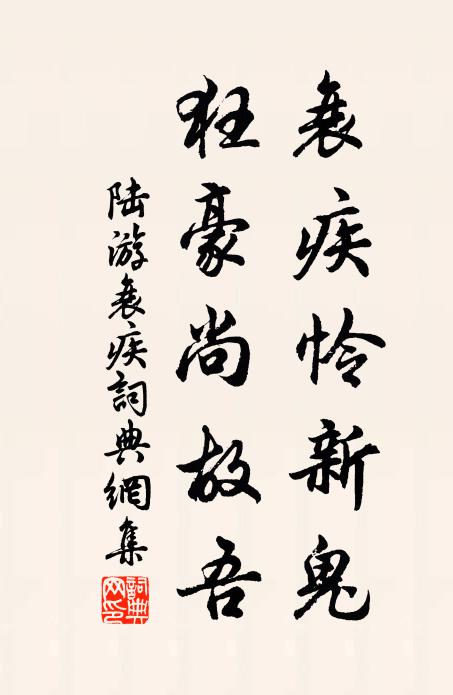 衰疾怜新鬼
狂豪尚故吾
陆游衰疾詞典網集
詞典網印